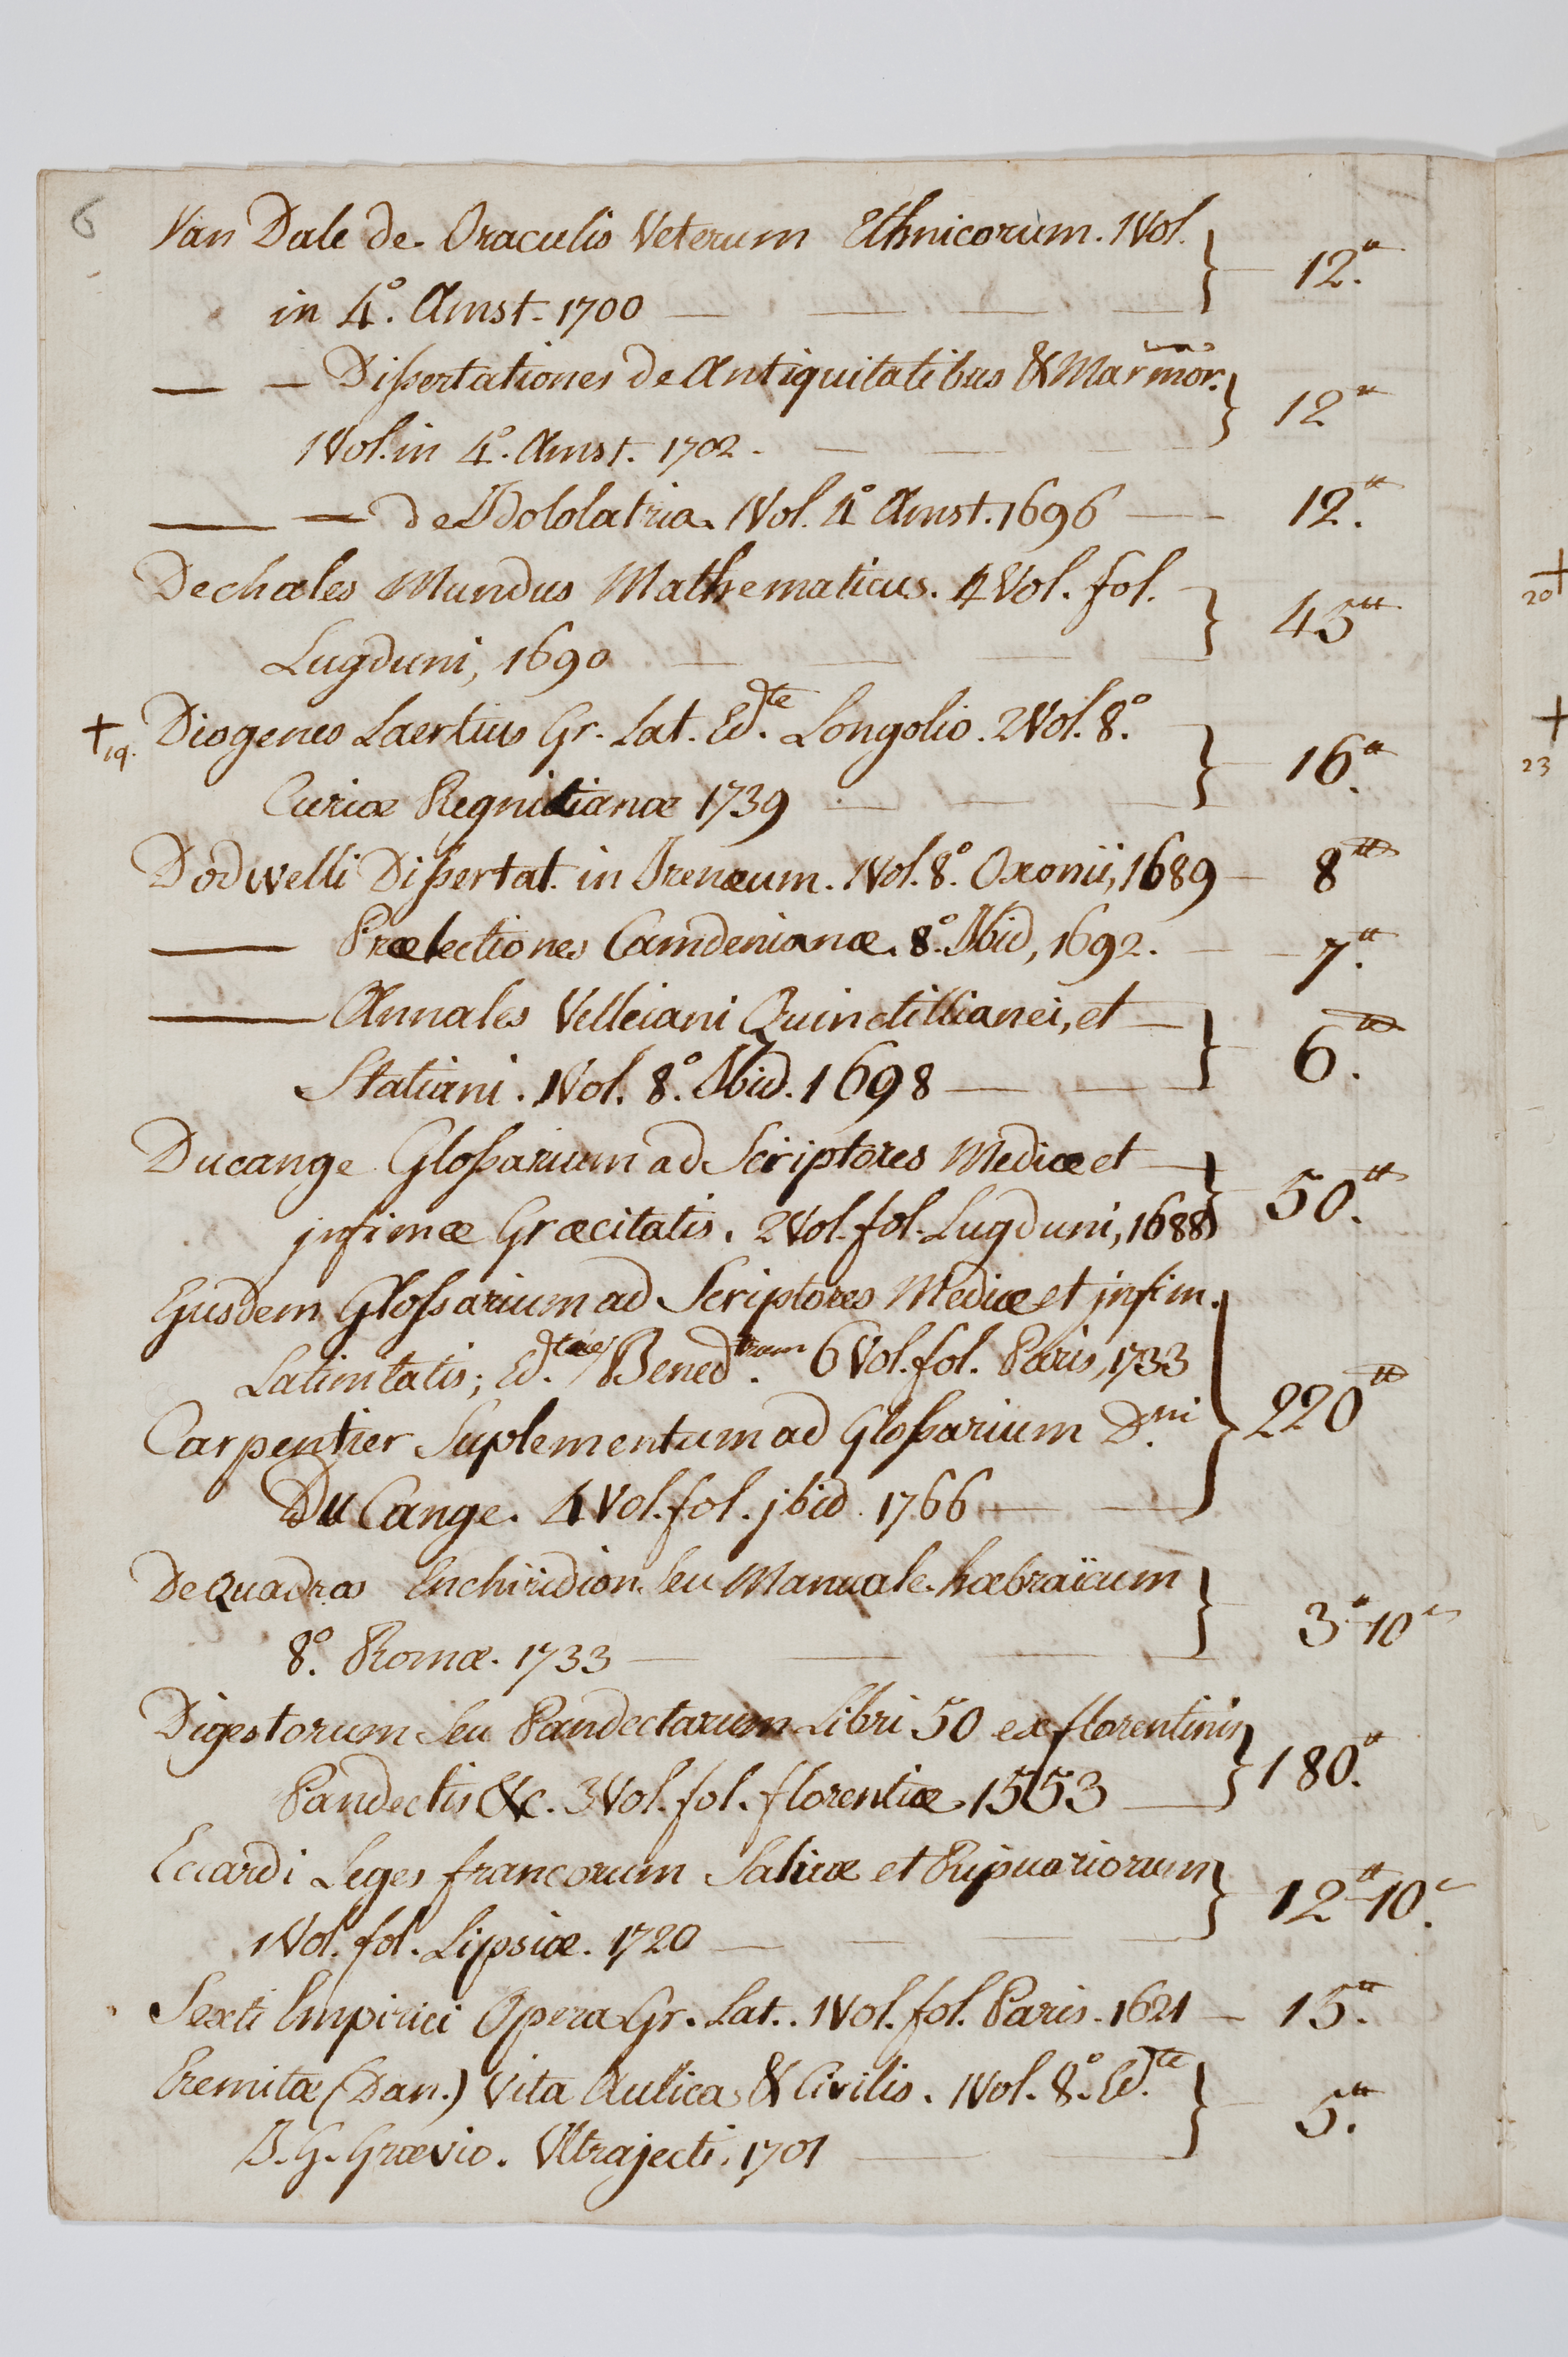 6
Van Dale de Oraculis Veterum Ethnicorum. 1 Vol.
in 4º. Amst. 1700 — — — — 12.tt
— — Dissertationes de Antiquitatibus & Marmor.
1 Vol. in 4º. Amst. 1702. — — — 12tt
— — de Idololatria. 1 Vol. 4º Amst. 1696 — — 12.tt
Dechales Mundus Mathematicus. 4 Vol. fol.
Lugduni, 1690 — — — — 45tt
+ 19. Diogenes Laertius Gr. Lat. Ed.te Longolio. 2 Vol. 8º.
Curiæ Regnitianæ 1739 — — — 16.tt
Dodwelli Dissertat. in Irenæum. 1 Vol. 8º. Oxonii, 1689 — 8tt
— Prælectiones Camdenianæ. 8º. Ibid, 1692. — — 7.tt
— Annales Velleiani Quinctillianei, et —
Statiani. 1 Vol. 8º. Ibid. 1698 — — — 6.tt
Ducange Glossarium ad Scriptores Mediæ et —
jnfimæ Græcitatis. 2 Vol. fol. Lugduni, 1688 50.tt
Ejusdem Glossarium ad Scriptores Mediæ et jnfim.
Latinitatis; Ed. Bened. 6 Vol. fol. Paris, 1733
Carpentier Suplementum ad Glossarium D.ni 220tt
Du Cange. 4 Vol. fol. jbid. 1766 — —
De Quadros Enchiridion seu Manuale hæbraïcum
8º. Romæ. 1733 — — — — 3tt-10s
Digestorum seu Pandectarum Libri 50 ex florentinis
Pandectis &c. 3 Vol. fol. florentiæ 1553 — 180.tt
Eccardi Leges francorum Salicæ et Ripuariorum
1 Vol. fol. Lipsiæ. 1720 — — — — 12tt-10.s
Sexti Empirici Opera Gr. Lat. 1 Vol. fol. Paris. 1621 — 15.tt
Eremitæ (Dan.) Vita Aulica & Civilis. 1 Vol. 8º. Ed.te
J. G. Grævio. Ultrajecti, 1701 — — 5.tt
+
20
+
23